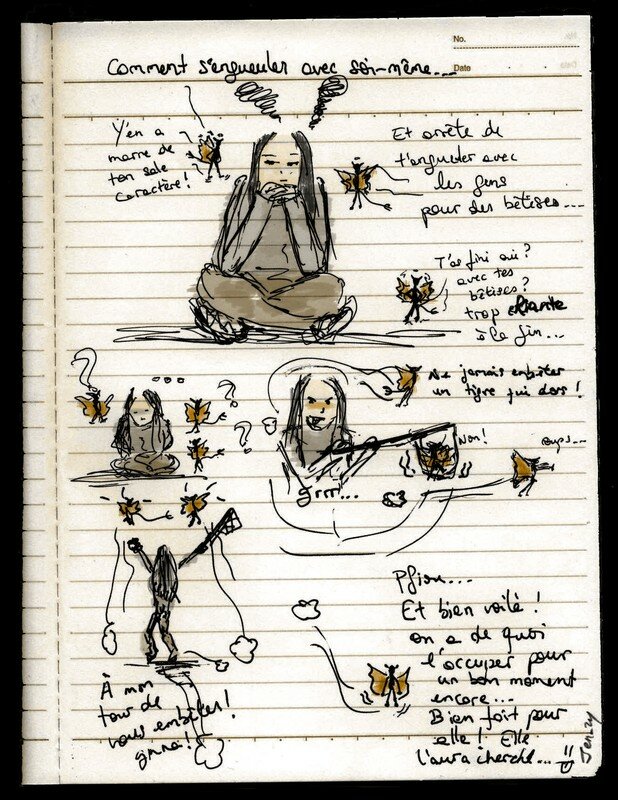 No.
Date
Comment s'engueuler avec soi-même...
Y'en a
marre de
ton sale
caractère!
Et arrête de
t'engueuler avec
les gens
pour des bêtises...
T'as fini oui?
avec tes
bêtises?
trop chiante
à la fin...
? ... ? ?
Ne jamais embêter
un tigre qui dort!
Non!
oups...
grrr...
À mon
tour de
vous embêter!
gnna!
Pfiou...
Et bien voilà!
on a de quoi
l'occuper pour
un bon moment
encore...
Bien fait pour
elle! Elle
l'aura cherché... =)